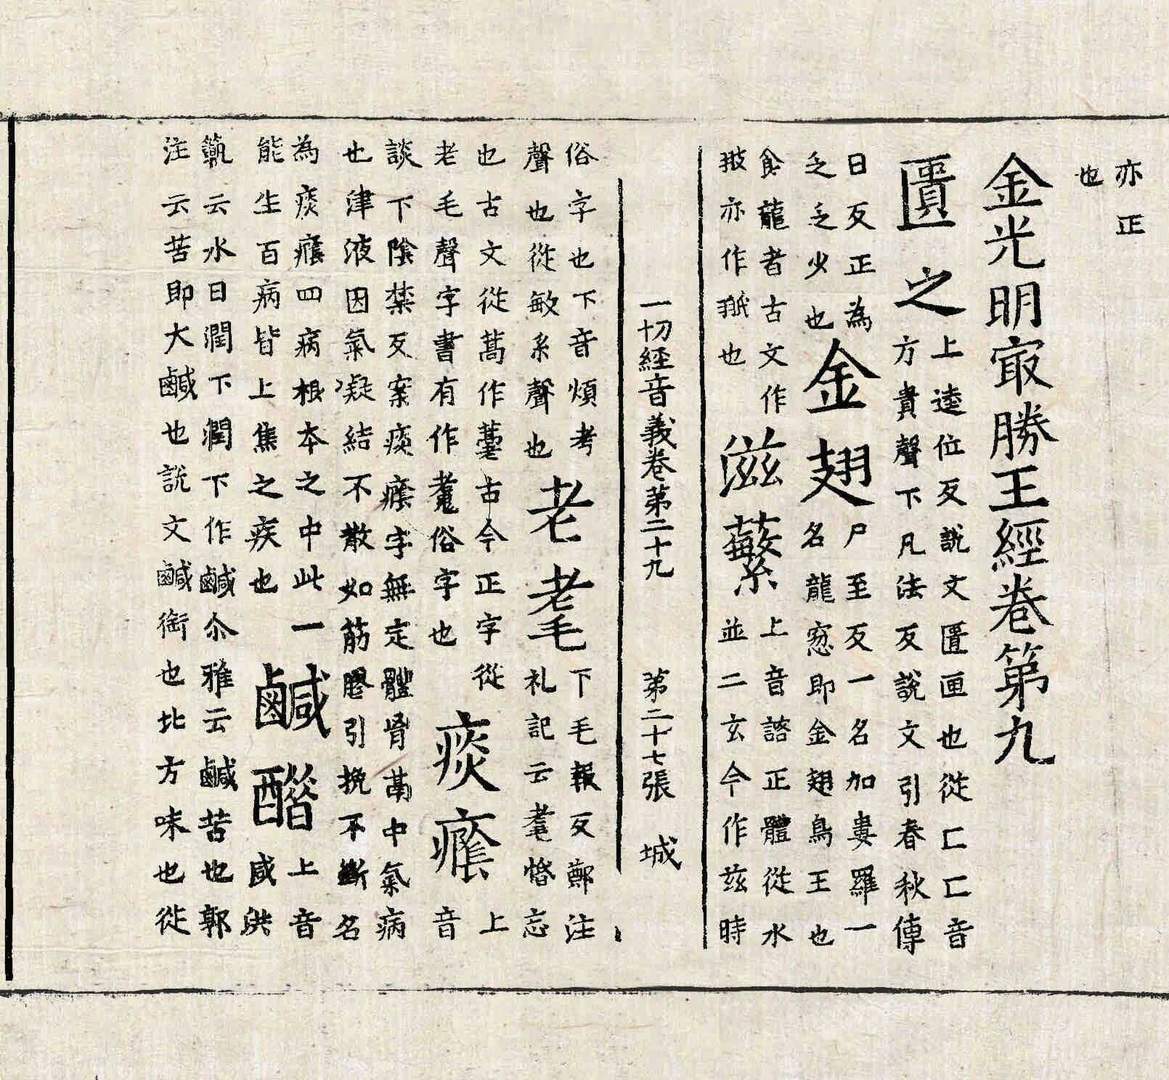 亦正
也
金光明㝡勝王經卷第九
匱之
上逵位反說文匱匣也從匚匚音
方貴聲下凡法反說文引春秋傳
曰反正為
乏乏少也
金翅
尸至反一名加婁羅一
名龍惌即金翅鳥王也
食龍者古文作
翄亦作㺲也
滋蘩
上音諮正體從水
並二玄今作玆時
一切經音義卷第二十九 第二十七張 城
俗字也下音煩考
聲也從敏系聲也
老耄
下毛報反鄭注
礼記云耄惛忘
也古文從蒿作薹古今正字從
老毛聲字書有作耄俗字也
痰癊
上
音
談下陰禁反案痰癊字無定體胷鬲中氣病
也津液因氣凝結不散如筋膠引挽不斷名
為痰癊四病根本之中此一
能生百病皆上焦之疾也
鹹
上音
咸洪
範云水曰潤下潤下作鹹尒雅云鹹苦也郭
注云苦即大鹹也說文鹹銜也北方味也從